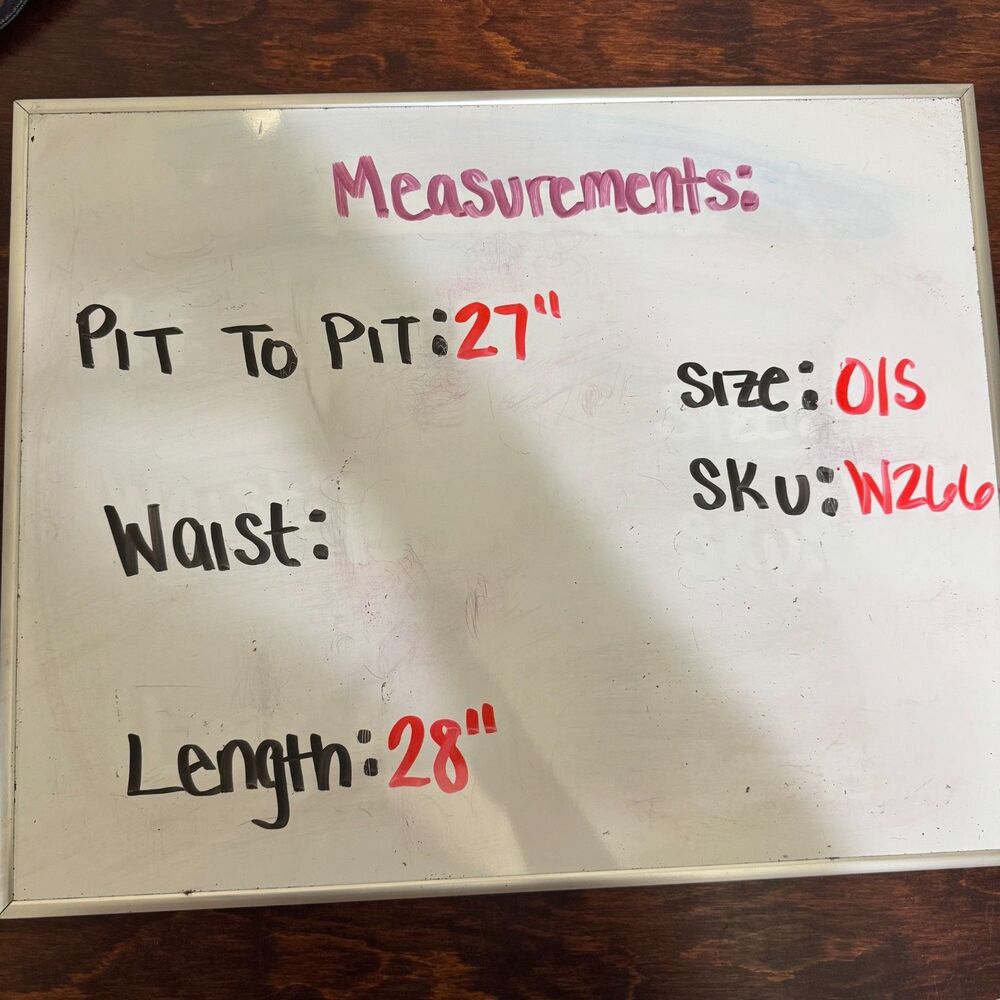 Measurements:
PIT TO PIT: 27"
Size: O/S
SKU: W266
Waist:
Length: 28"